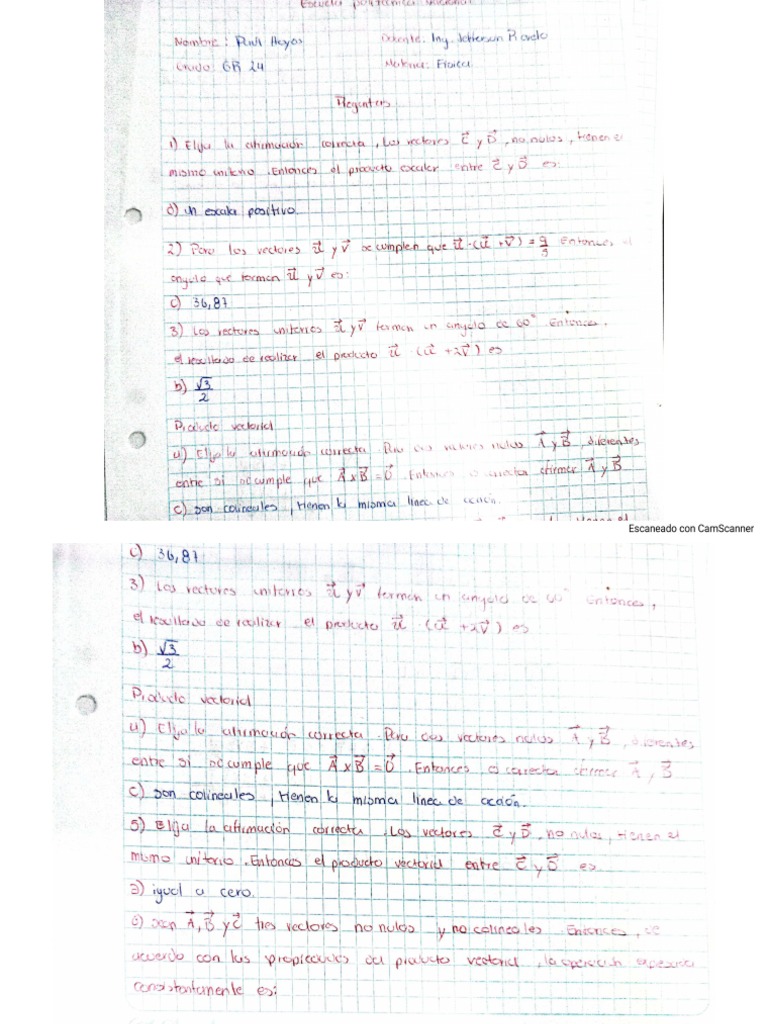 Escuela politecnica nacional
Nombre: Docente: Ing. Jefferson
GR 24 Materia: Física
Preguntas
1) Elija la afirmación correcta, Los vectores C⃗ y D⃗, no nulos, tienen el
mismo unitario. Entonces el producto escalar entre C⃗ y D⃗ es:
d) un escalar positivo.
2) Para los vectores u⃗ y v⃗ se cumplen que u⃗ · (u⃗ + v⃗) = 9/5 Entonces el
angulo que forman u⃗ y v⃗ es:
c) 36,87
3) Los vectores unitarios u⃗ y v⃗ forman un angulo de 60° Entonces,
el resultado de realizar el producto u⃗ · (u⃗ + 2v⃗) es
b) √3/2
Producto vectorial
4) Elija la afirmación correcta. Para dos vectores nulos A⃗ y B⃗, diferentes
entre si se cumple que A⃗ x B⃗ = O⃗. Entonces es correcto afirmar A⃗ y B⃗
c) son colineales, tienen la misma linea de acción.
Escaneado con CamScanner
c) 36,87
3) Los vectores unitarios u⃗ y v⃗ forman un angulo de 60° Entonces,
el resultado de realizar el producto u⃗ · (u⃗ + 2v⃗) es
b) √3/2
Producto vectorial
4) Elija la afirmación correcta. Para dos vectores nulos A⃗ y B⃗, diferentes
entre si se cumple que A⃗ x B⃗ = O⃗. Entonces, es correcto afirmar A⃗ y B⃗
c) son colineales, tienen la misma linea de acción.
5) Elija la afirmación correcta. Los vectores C⃗ y D⃗, no nulos, tienen el
mismo unitario. Entonces el producto vectorial entre C⃗ y D⃗ es
a) igual a cero.
6) sean A⃗, B⃗ y C⃗ tres vectores no nulos y no colineales. Entonces, de
acuerdo con las propiedades del producto vectorial, la operación expresada
consistentemente es: